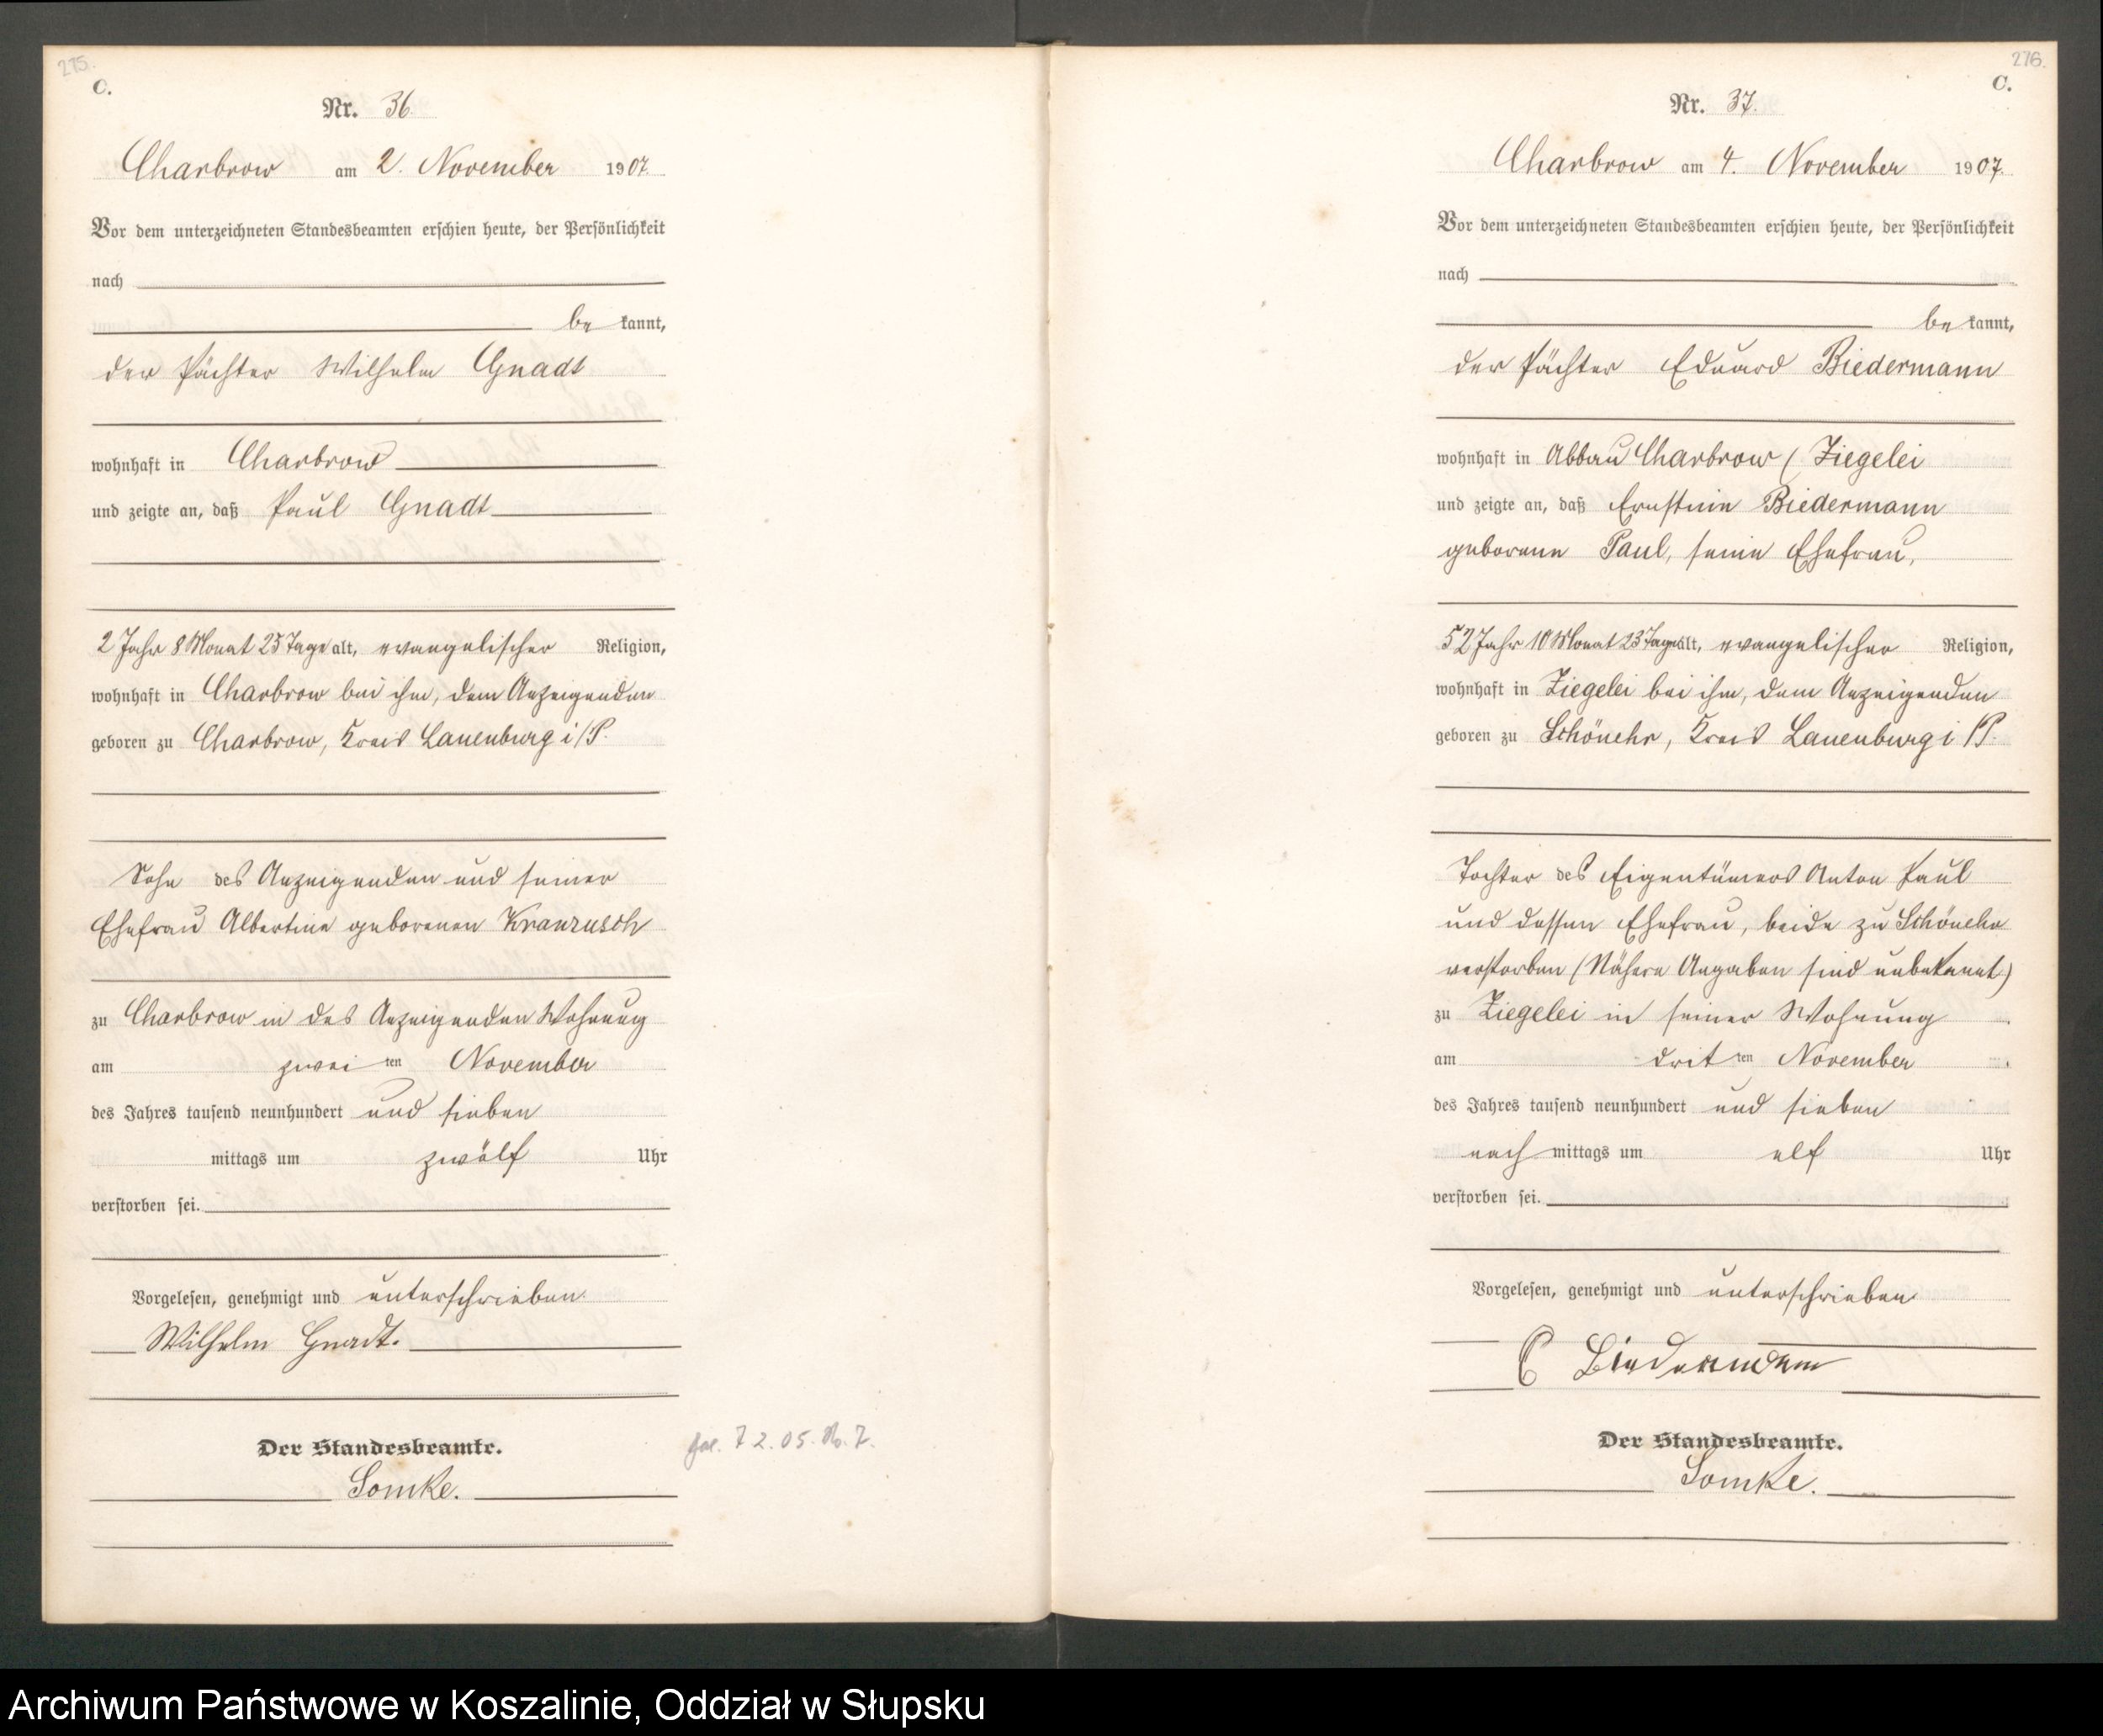 275.
C.
Nr. 36.
Charbrow am 2. November 1907.
Vor dem unterzeichneten Standesbeamten erschien heute, der Persönlichkeit
nach
be kannt,
der Pächter Wilhelm Gnadt
wohnhaft in Charbrow
und zeigte an, daß Paul Gnadt
2 Jahr 8 Monat 25 Tage alt, evangelischer Religion,
wohnhaft in Charbrow bei ihm, dem Anzeigenden
geboren zu Charbrow, Kreis Lauenburg i/P.
Sohn des Anzeigenden und seiner
Ehefrau Albertine geborenen Kranzusch
zu Charbrow in des Anzeigenden Wohnung
am zwei ten November
des Jahres tausend neunhundert und sieben
mittags um zwölf Uhr
verstorben sei.
Vorgelesen, genehmigt und unterschrieben.
Wilhelm Gnadt.
Der Standesbeamte.
Somke.
7 2. 05. No. 7.
276.
C.
Nr. 37.
Charbrow am 4. November 1907.
Vor dem unterzeichneten Standesbeamten erschien heute, der Persönlichkeit
nach
be kannt,
der Pächter Eduard Biedermann
wohnhaft in Abbau Charbrow (Ziegelei
und zeigte an, daß Ernstine Biedermann
geborene Paul, seine Ehefrau,
52 Jahr 10 Monat 23 Tage alt, evangelischer Religion,
wohnhaft in Ziegelei bei ihm, dem Anzeigenden
geboren zu Schönehr, Kreis Lauenburg i/P.
Tochter des Eigentümers Anton Paul
und dessen Ehefrau, beide zu Schönehr
verstorben (Nähere Angaben sind unbekannt)
zu Ziegelei in seiner Wohnung
am drit ten November
des Jahres tausend neunhundert und sieben
nach mittags um elf Uhr
verstorben sei.
Vorgelesen, genehmigt und unterschrieben
E Biedermann
Der Standesbeamte.
Somke.
Archiwum Państwowe w Koszalinie, Oddział w Słupsku